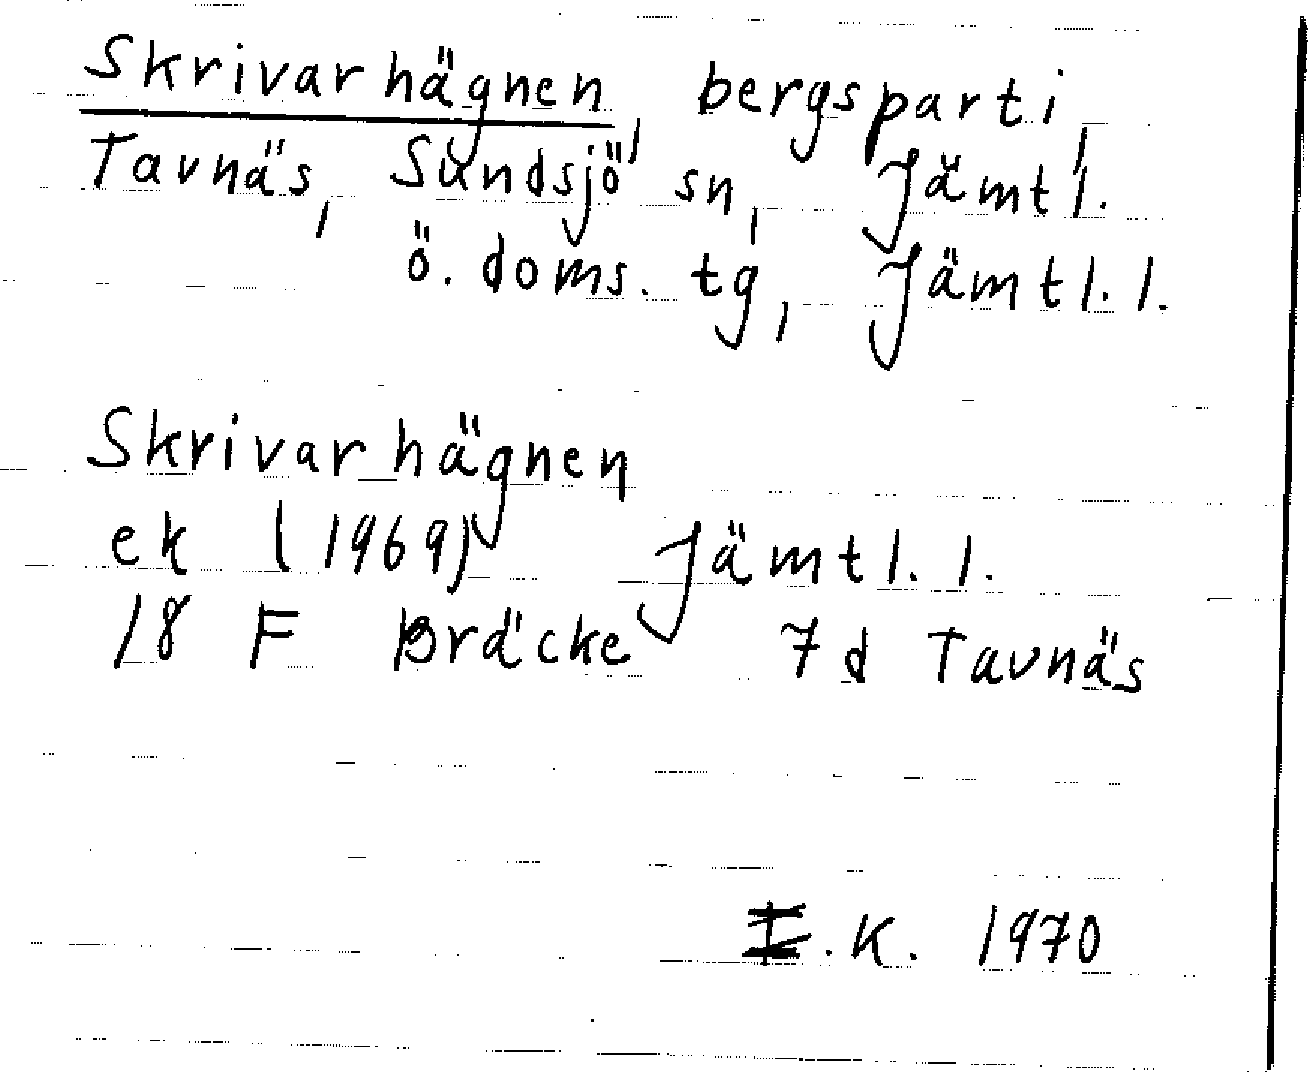 Skrivarhägnen, bergsparti,
Tavnäs, Sundsjö sn, Jämtl.
ö. doms. tg, Jämtl. l.
Skrivarhägnen
ek (1969) Jämtl. l.
18 F Bräcke 7d Tavnäs
E.K. 1970